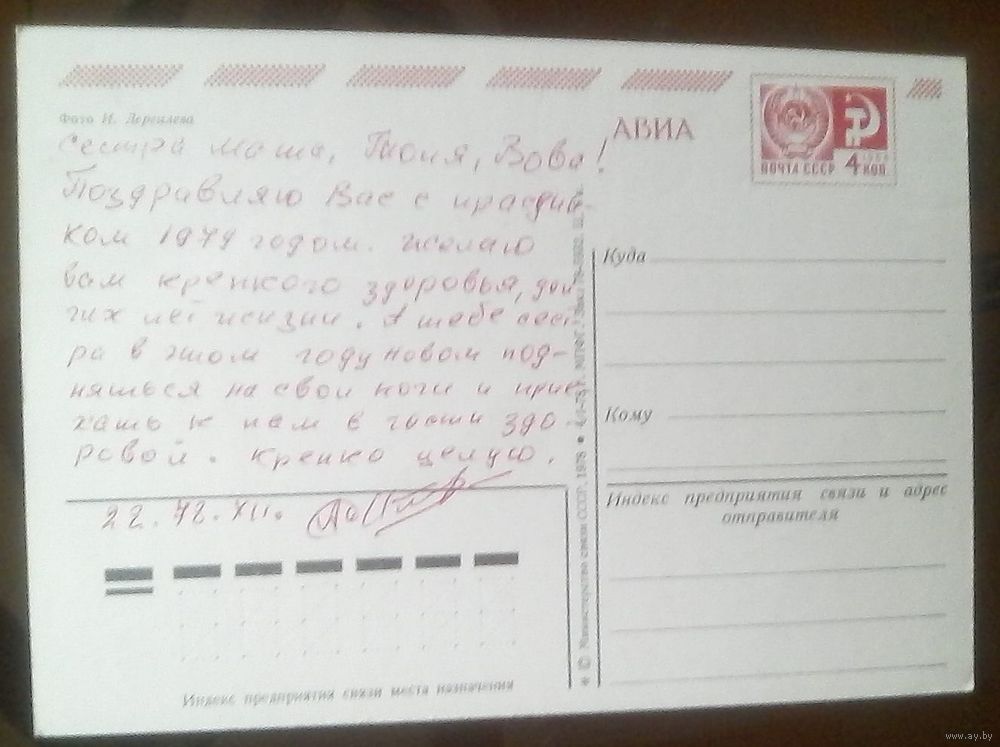 Фото И. Дергилева
Сестра Маша, Тоня, Вова!
Поздравляю Вас с празdни-
ком 1979 годом. Желаю
вам крепкого здоровья, дол
гих лет жизни. А тебе сест
ра в этом году новом под-
няться на свои ноги и прие
хать к нам в гости здо-
ровой. Крепко целую.
22. 78. XII.
АВИА
ПОЧТА СССР 4 КОП
Куда
Кому
Индекс предприятия связи и адрес
отправителя
Индекс предприятия связи места назначения
© Министерство связи СССР, 1978
www.ay.by